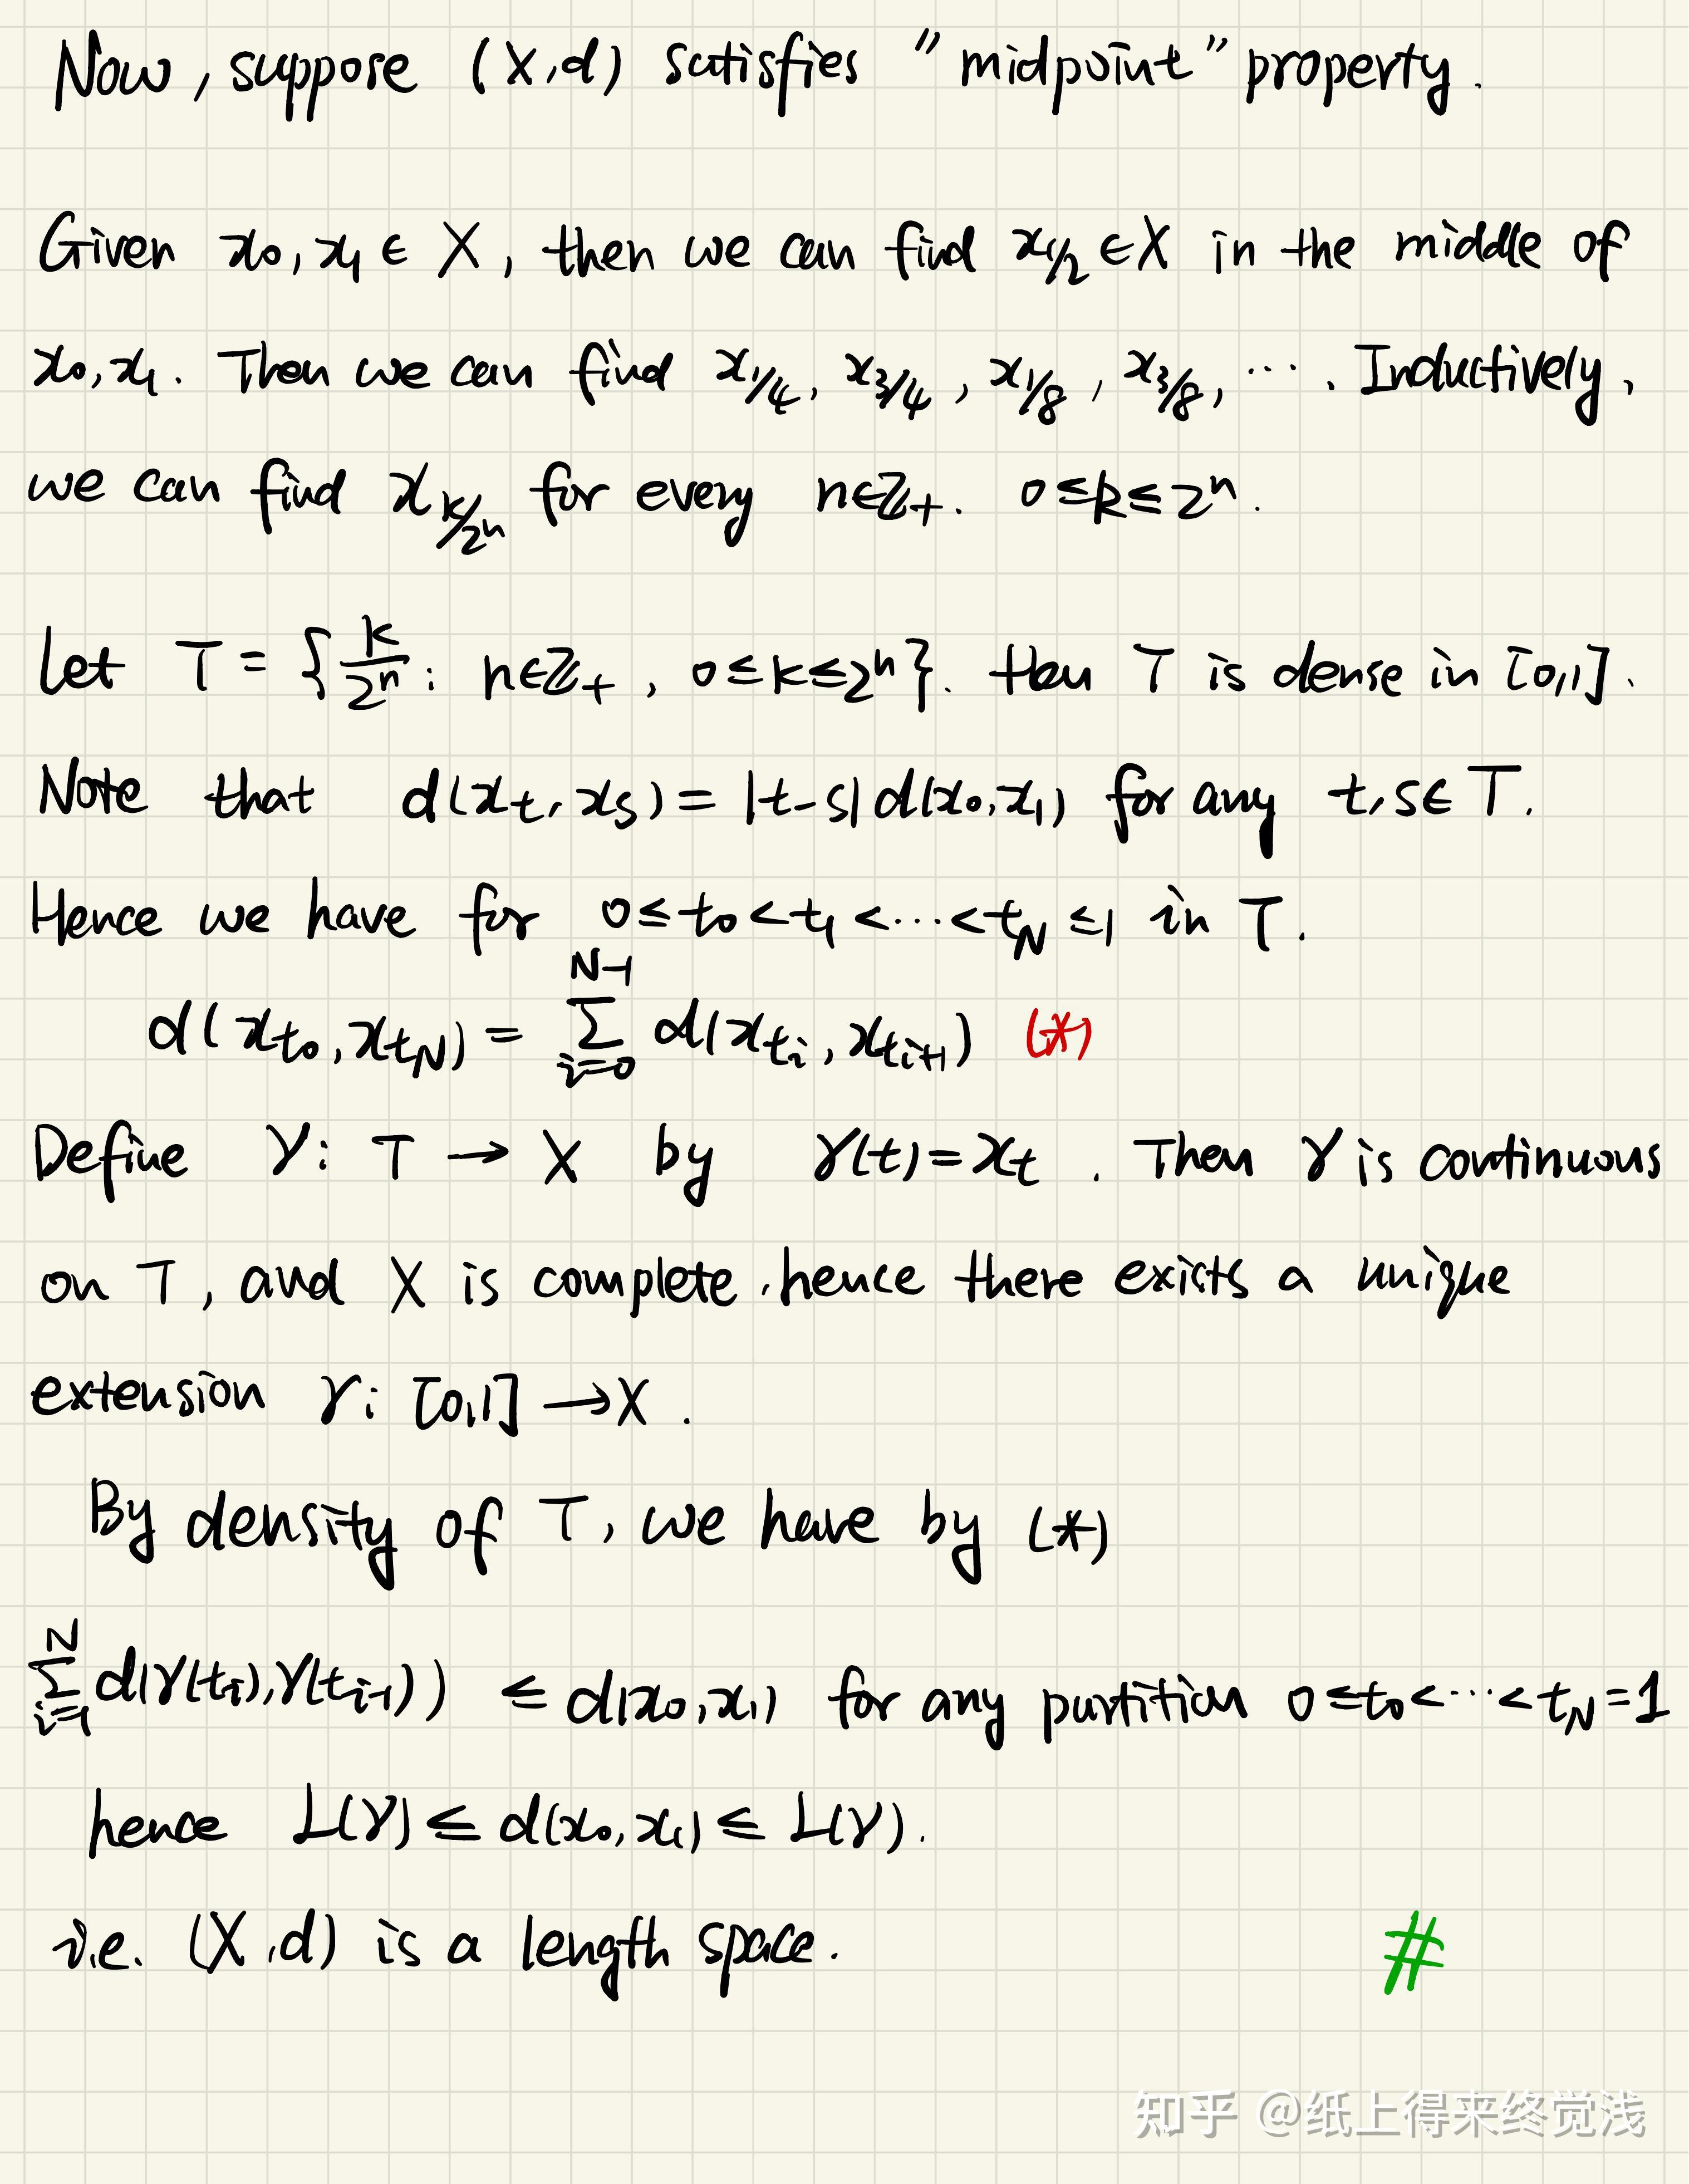 Now, suppose (X,d) satisfies "midpoint" property.
Given x₀,x₁ ∈ X, then we can find x_{1/2} ∈ X in the middle of
x₀,x₁. Then we can find x_{1/4}, x_{3/4}, x_{1/8}, x_{3/8}, ⋯. Inductively,
we can find x_{k/2ⁿ} for every n∈ℤ₊. 0≤k≤2ⁿ.
Let T = {k/2ⁿ : n∈ℤ₊, 0≤k≤2ⁿ}. then T is dense in [0,1].
Note that d(x_t, x_s) = |t-s| d(x₀,x₁) for any t,s∈T.
Hence we have for 0≤t₀<t₁<⋯<t_N≤1 in T.
d(x_{t₀}, x_{t_N}) = ∑_{i=0}^{N-1} d(x_{t_i}, x_{t_{i+1}}) (*)
Define γ: T → X by γ(t)=x_t. Then γ is continuous
on T, and X is complete, hence there exists a unique
extension γ: [0,1] → X.
By density of T, we have by (*)
∑_{i=1}^{N} d(γ(t_i),γ(t_{i-1})) ≤ d(x₀,x₁) for any partition 0≤t₀<⋯<t_N=1
hence L(γ) ≤ d(x₀,x₁) ≤ L(γ).
i.e. (X,d) is a length space. #
知乎 @纸上得来终觉浅